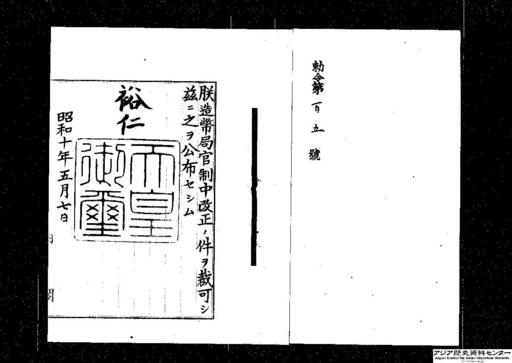 勅令第百五號
朕造幣局官制中改正ノ件ヲ裁可シ
茲ニ之ヲ公布セシム
裕仁
天皇御璽
昭和十年五月七日
内閣
アジア歴史資料センター
Japan Center for Asian Historical Records